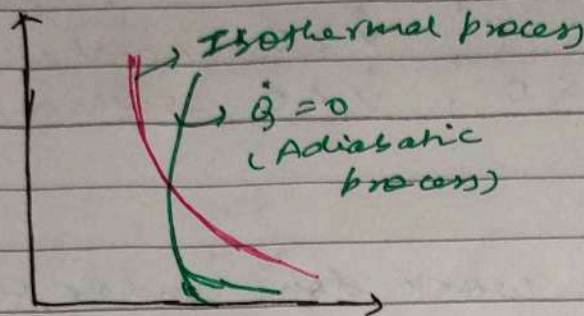 Isothermal process
Q̇ = 0
(Adiabatic
process)